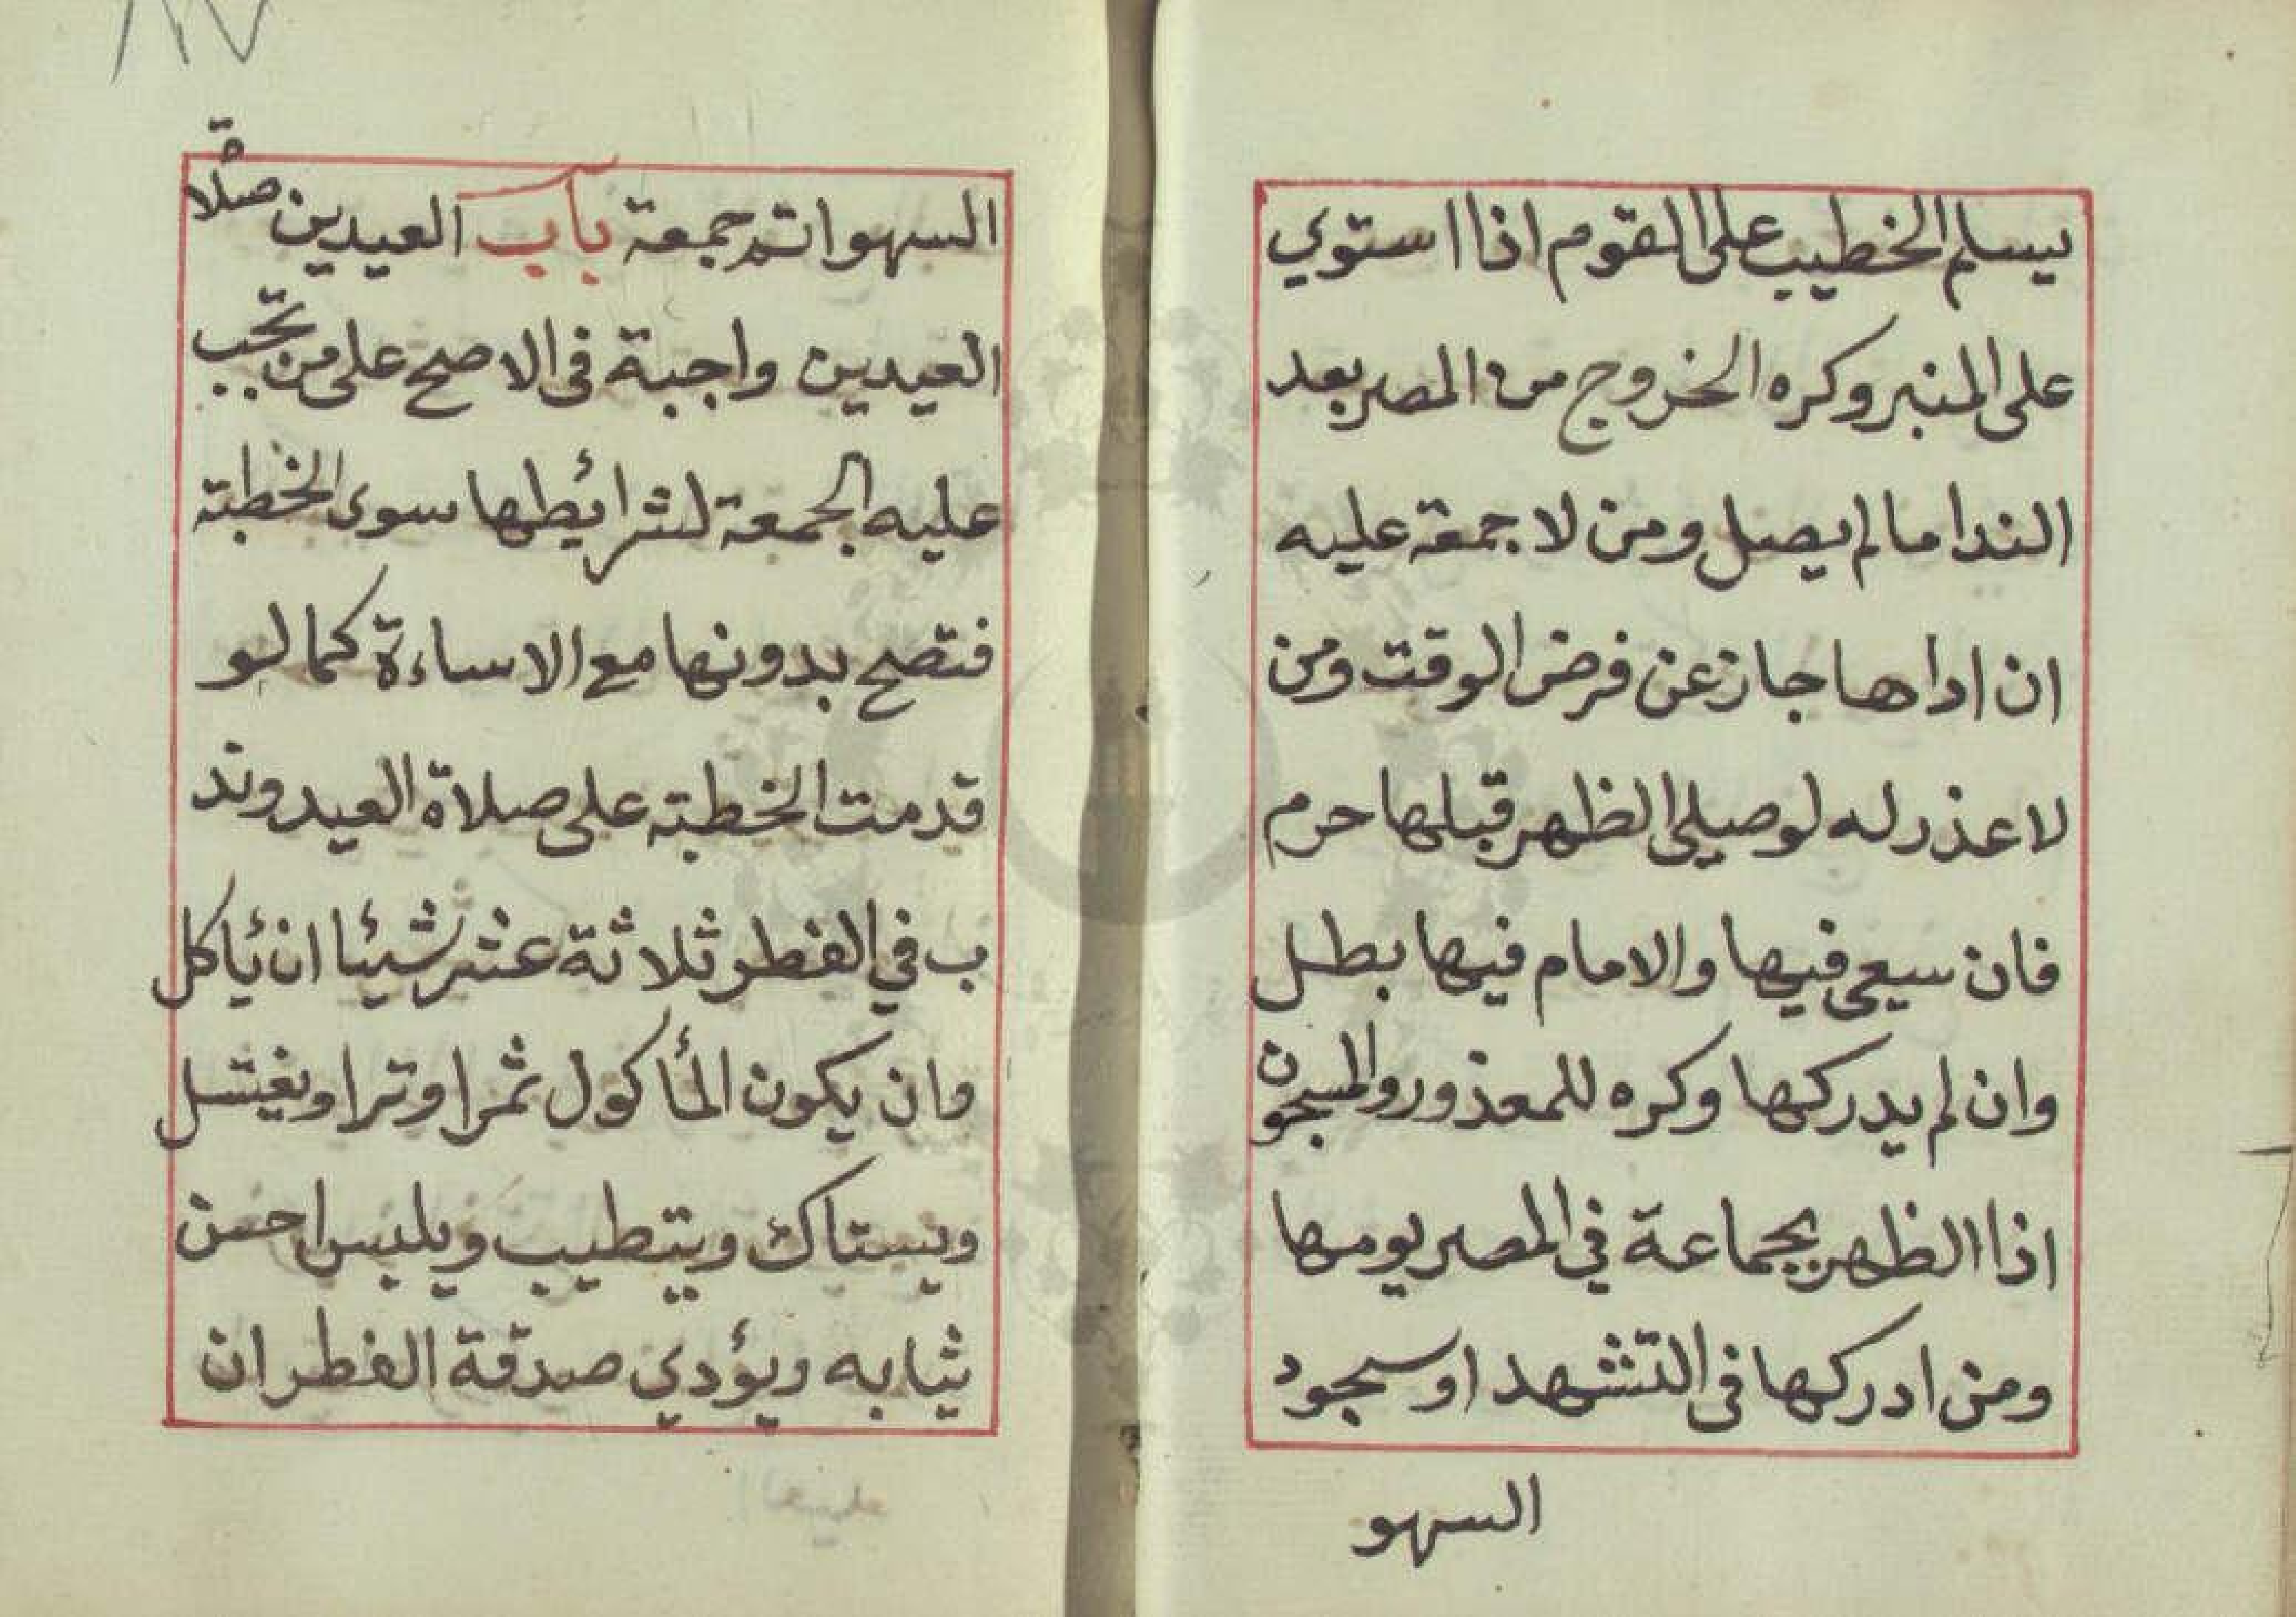 يسلم الخطيب على القوم اذا استوي
على المنبر وكره الخروج من المصر بعد
الندا ما لم يصل ومن لا جمعة عليه
ان اداها جاز عن فرض الوقت ومن
لا عذر له لو صلى الظهر قبلها حرم
فان سعى فيها والامام فيها بطل
وان لم يدركها وكره للمعذور والمسجون
اذا الظهر بجماعة في المصر يومها
ومن ادركها في التشهد او سجود
السهو
السهو اتم جمعة باب العيدين صلاة
العيدين واجبة في الاصح على من تجب
عليه الجمعة لشرائطها سوى الخطبة
فتصح بدونها مع الاساءة كما لو
قدمت الخطبة على صلاة العيد وند
ب في الفطر ثلاثة عشر شيئا ان يأكل
وان يكون المأكول تمرا وترا ويغتسل
ويستاك ويتطيب ويلبس احسن
ثيابه ويؤدي صدقة الفطر ان